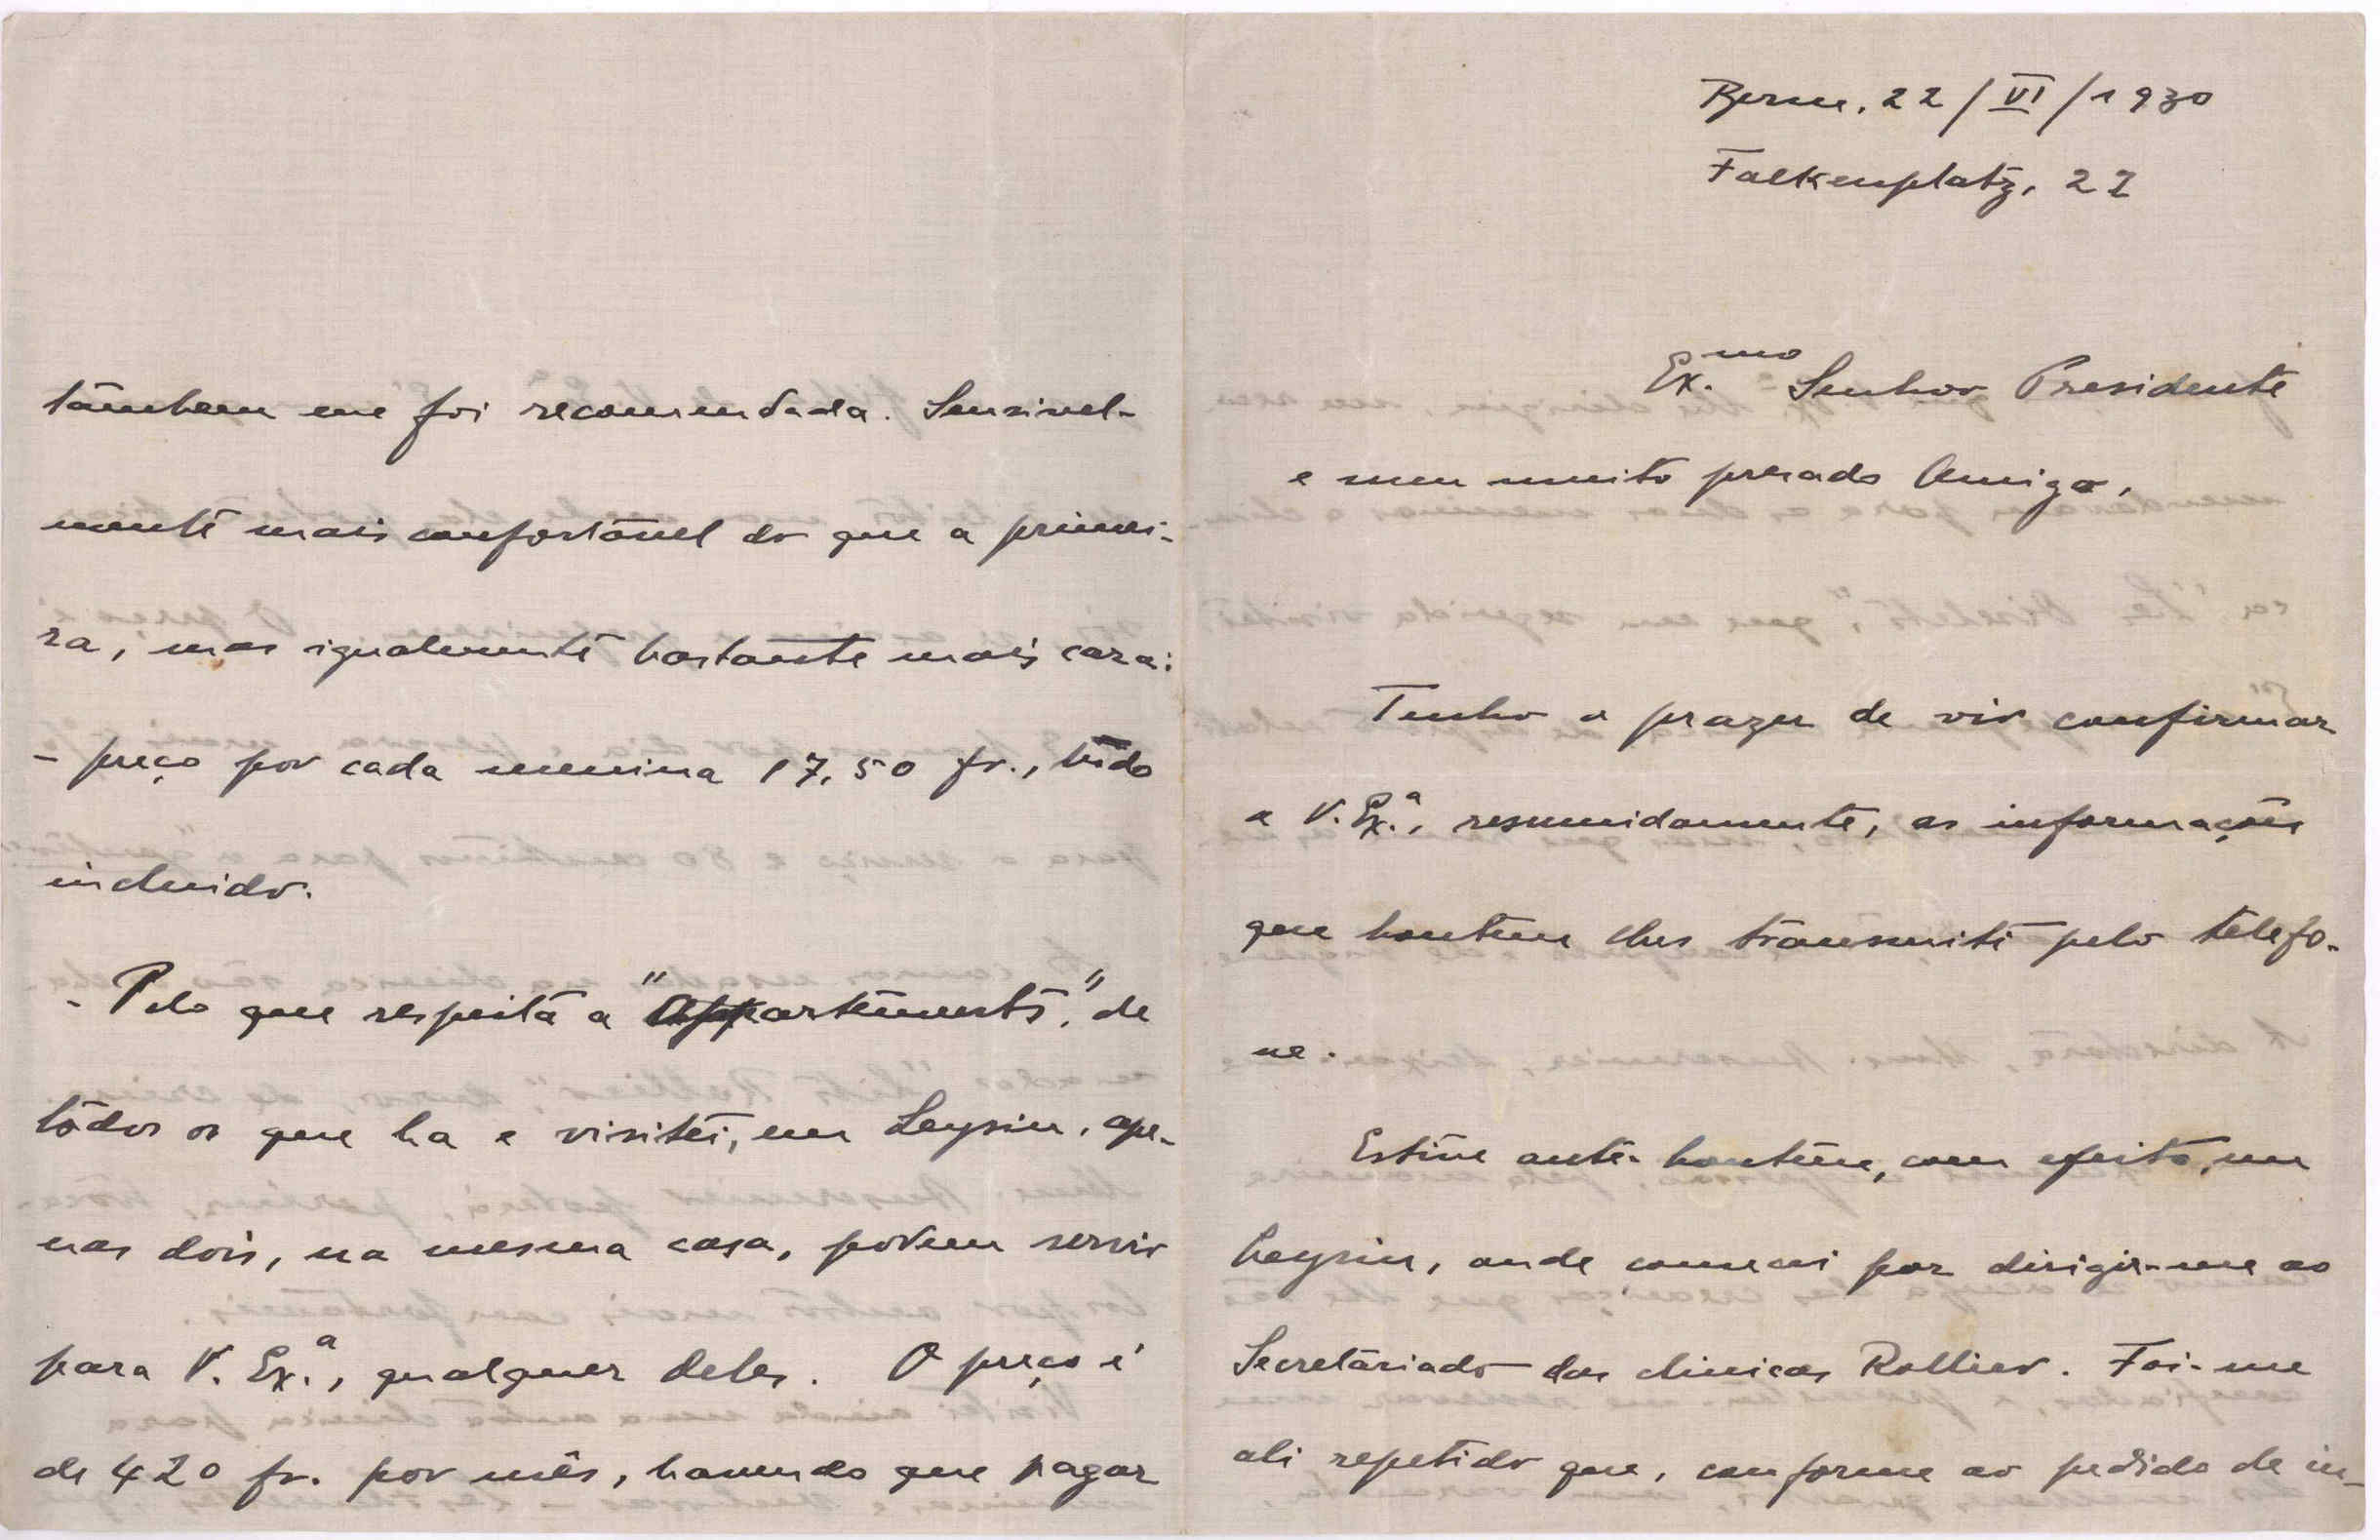 Berne, 22/VI/1930
Falkenplatz, 22
Ex.mo Senhor Presidente
e meu muito presado Amigo,
Tenho o prazer de vir confirmar
a V. Ex.ª, resumidamente, as informações
que hontem lhes transmiti pelo telefo-
ne.
Estive ante-hontem, com efeito, em
Leysin, onde comecei por dirigir-me ao
Secretariado das clinicas Rollier. Foi-me
ali repetido que, conforme ao pedido de in-
tambem me foi recomendada. Sensivel-
mente mais confortavel do que a primei-
ra, mas igualmente bastante mais cara:
- preço por cada menina 17,50 fr., tudo
incluido.
- Pelo que respeita a "appartements", de
todos os que ha e visitei, em Leysin, ape-
nas dois, na mesma casa, podem servir
para V. Ex.ª, qualquer deles. O preço é
de 420 fr. por mês, havendo que pagar